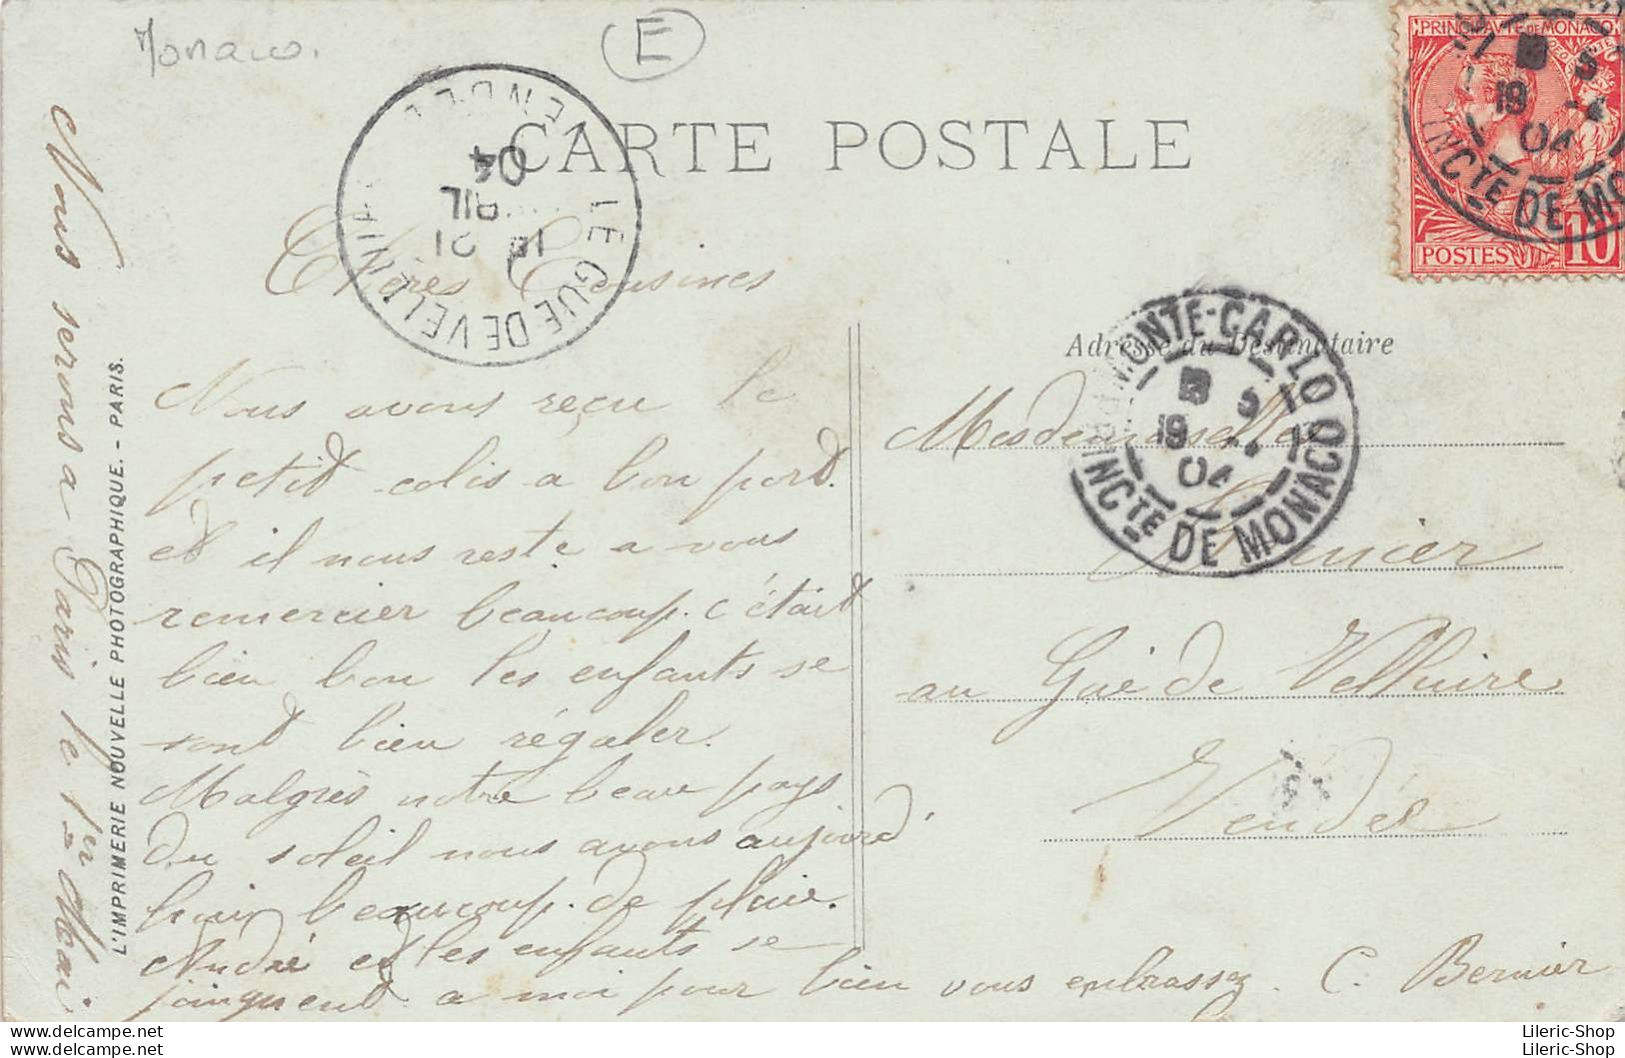 Monaco.
E
CARTE POSTALE
PRINCIPAUTÉ DE MONACO
POSTES 10
19 04
INCTE DE MO
LE GUE DE VELLUIRE
VENDEE
21
04
Chères Cousines
Nous avons reçu le
petit colis a bon port.
et il nous reste a vous
remercier beaucoup. c'était
bien bon les enfants se
sont bien régaler.
Malgrès notre beau pays
du soleil nous avons aujourd'
huit beaucoup. de pluie.
André et les enfants se
joingnent a moi pour bien vous enbrassez. C. Bernier
Nous serons a Paris le 1er Mai
L'IMPRIMERIE NOUVELLE PHOTOGRAPHIQUE. - PARIS.
Adresse du Destinataire
MONTE-CARLO
19 04
PRINCTE DE MONACO
Mesdemoiselles
au Gué de Velluire
Vendée
Lileric-Shop
Lileric-Shop